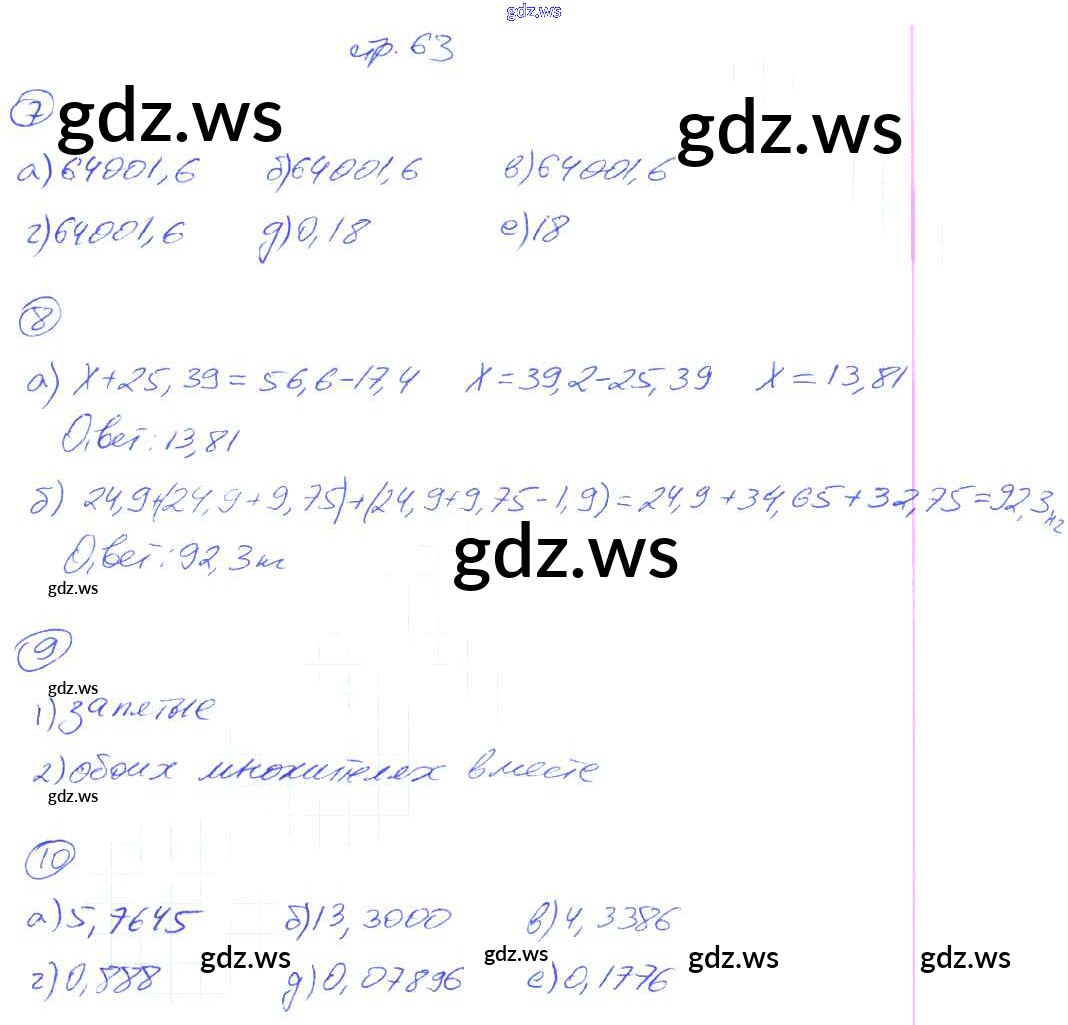 gdz.ws
стр. 63
7
gdz.ws gdz.ws
а) 64001,6 б) 64001,6 в) 64001,6
г) 64001,6 д) 0,18 е) 18
8
а) х+25,39=56,6-17,4 х=39,2-25,39 х=13,81
Ответ: 13,81
б) 24,9+(24,9+9,75)+(24,9+9,75-1,9)=24,9+34,65+32,75=92,3кг
gdz.ws
Ответ: 92,3кг
gdz.ws
9
gdz.ws
1) запятые
2) обоих множителях вместе
gdz.ws
10
а) 5,7645 б) 13,3000 в) 4,3386
gdz.ws gdz.ws gdz.ws gdz.ws
г) 0,888 д) 0,07896 е) 0,1776